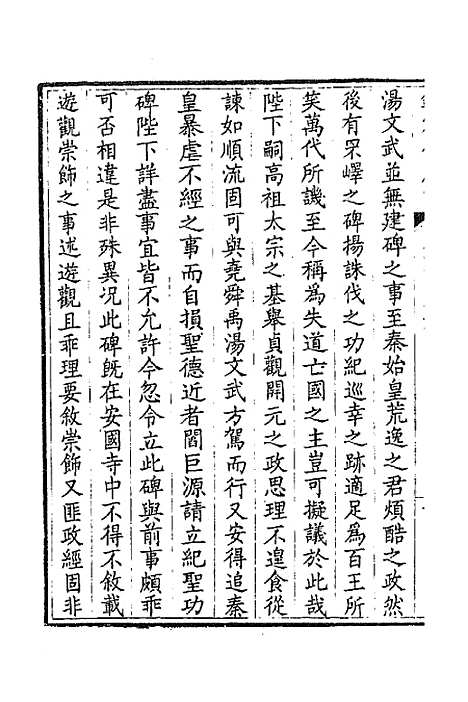 湯文武並無建碑之事至秦始皇荒逸之君煩酷之政然
後有罘嶧之碑揚誅伐之功紀巡幸之跡適足為百王所
笑萬代所譏至今稱為失道亡國之主豈可擬議於此哉
陛下嗣高祖太宗之基舉貞觀開元之政思理不遑食從
諫如順流固可與堯舜禹湯文武方駕而行又安得追秦
皇暴虐不經之事而自損聖德近者閻巨源請立紀聖功
碑陛下詳盡事宜皆不允許今忽令立此碑與前事頗乖
可否相違是非殊異況此碑既在安國寺中不得不敘載
遊觀崇飾之事述遊觀且乖理要敘崇飾又匪政經固非